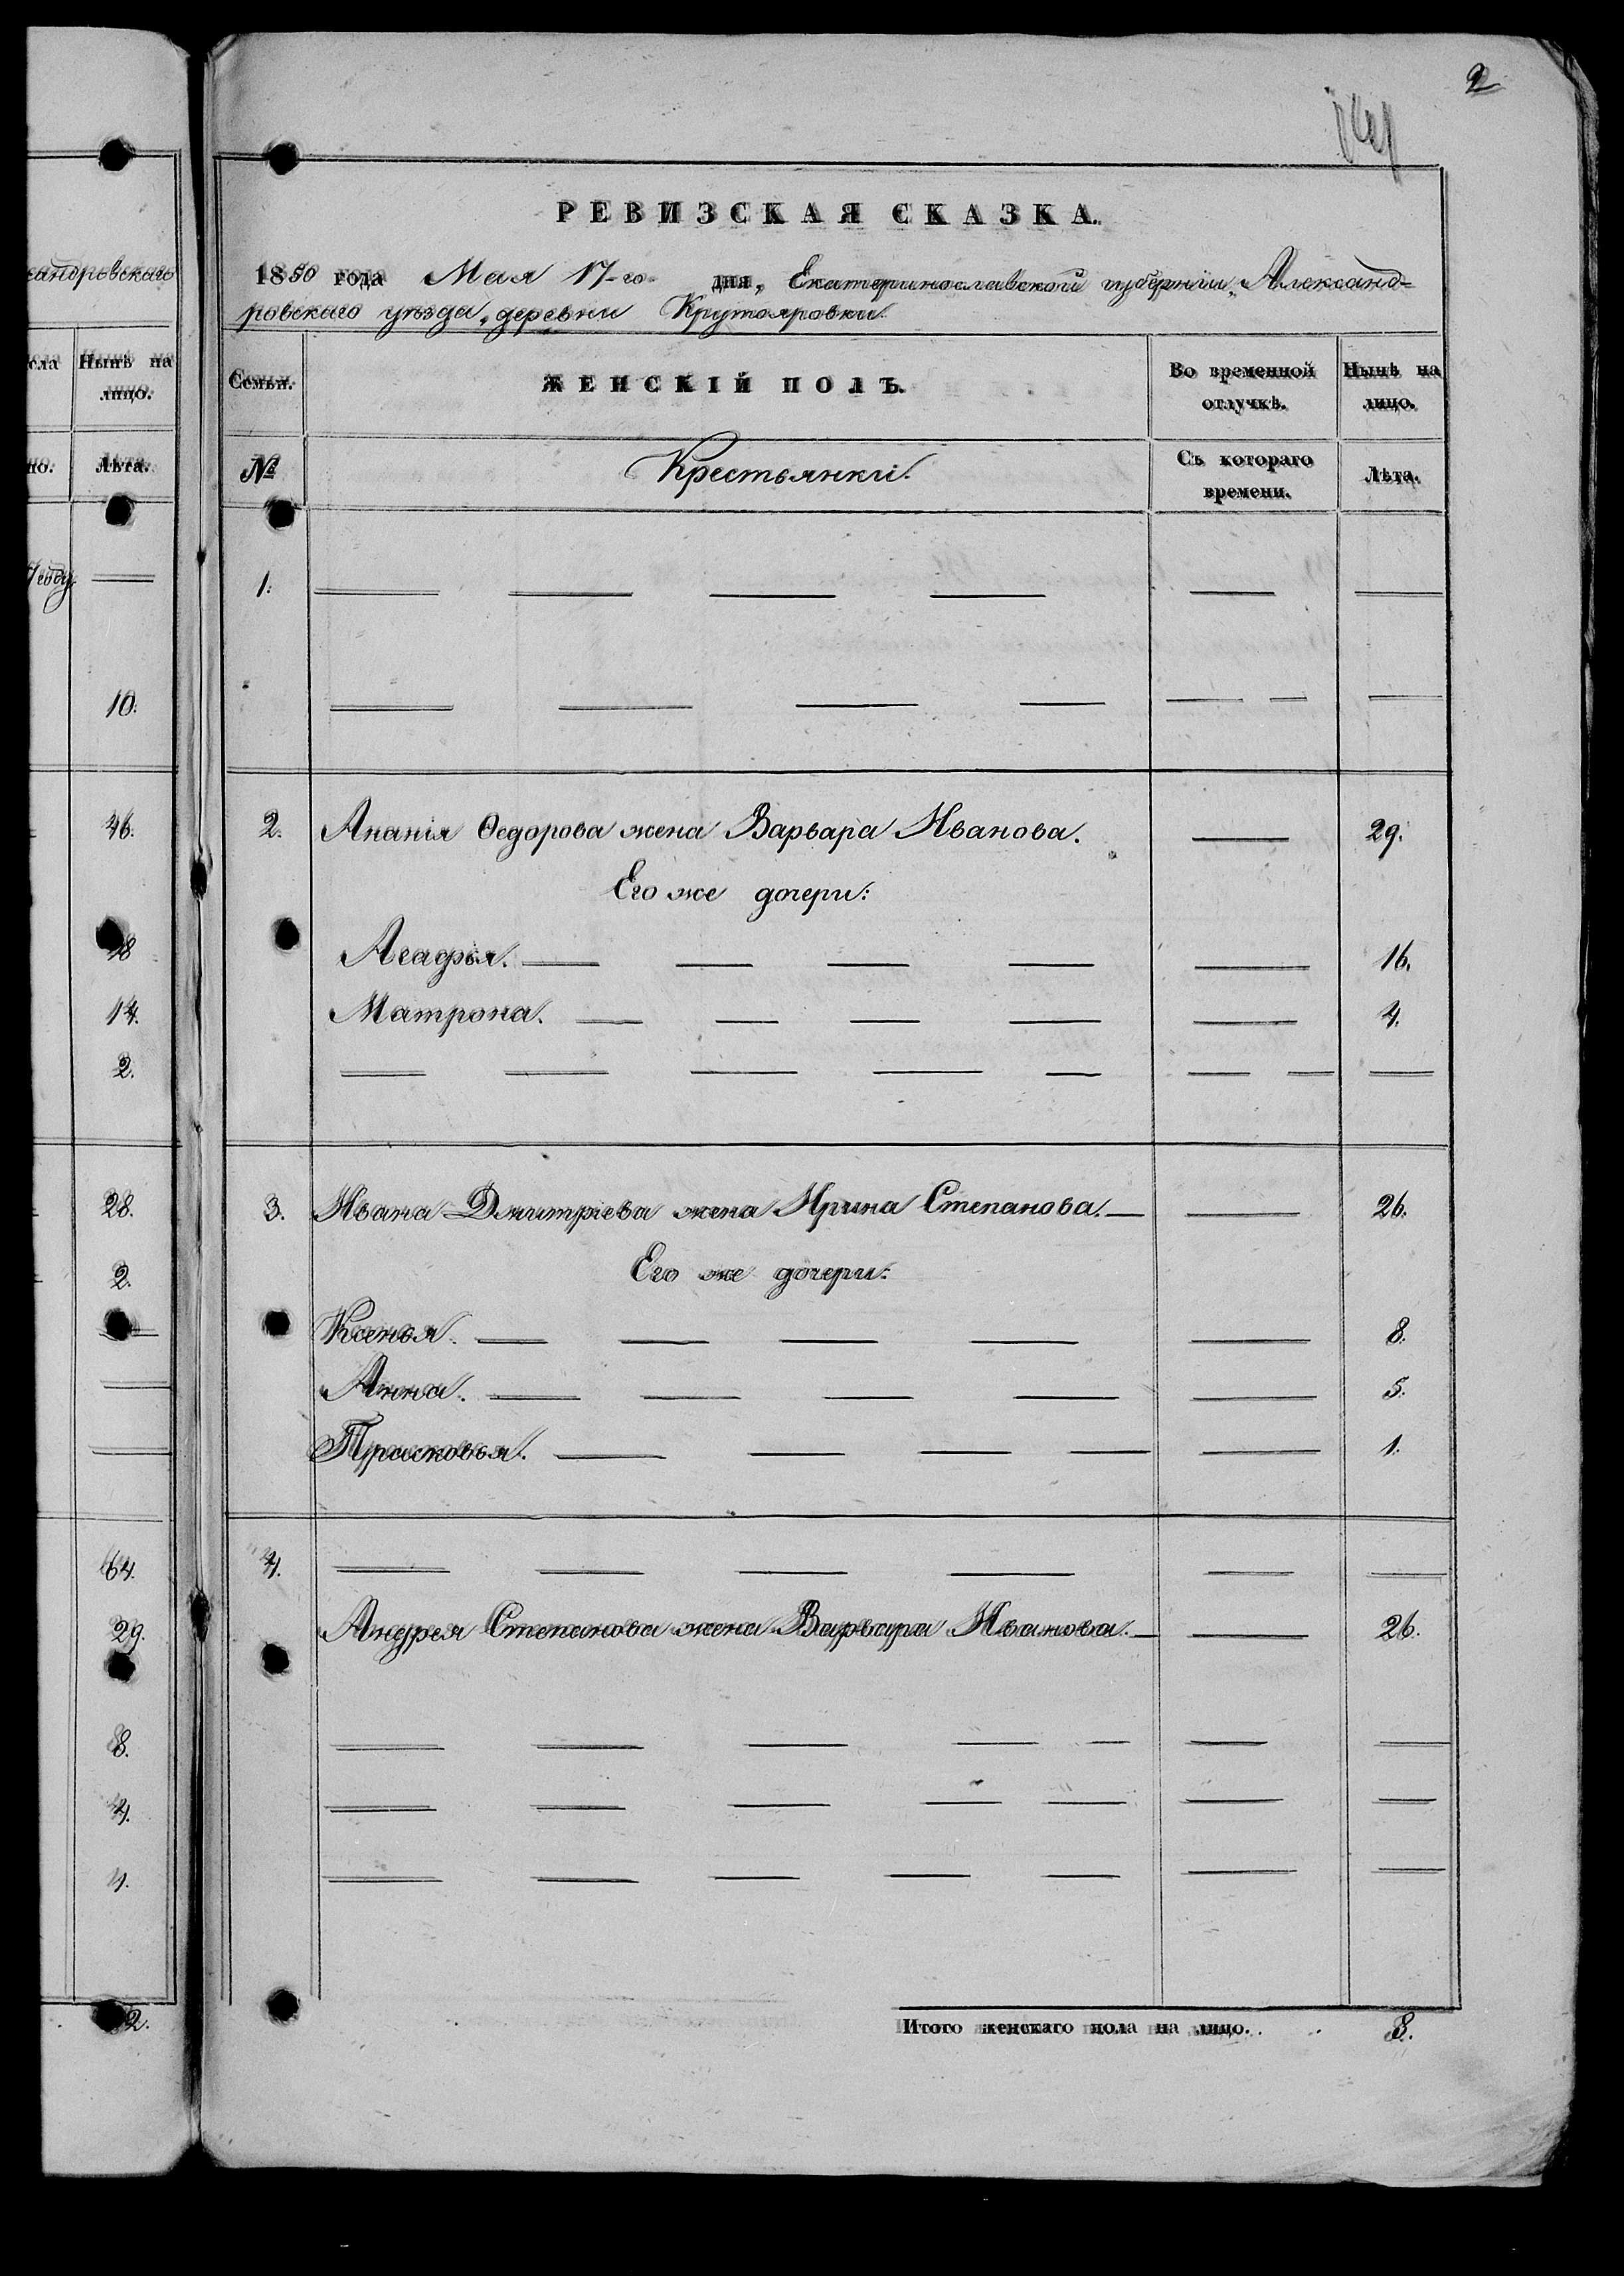 2
сандровскаго
сла
Нынѣ на
лицо.
но.
Лѣта.
году.
10.
46.
18
14.
2.
28.
2.
64.
29.
8.
4.
2.
РЕВИЗСКАЯ СКАЗКА.
1850 года Мая 17-го дня, Екатеринославской губерніи, Александ-
ровскаго уѣзда, деревни Крутояровки
Семьи.
ЖЕНСКІЙ ПОЛЪ.
Во временной
отлучкѣ.
Нынѣ на
лицо.
№
Крестьянки.
Съ котораго
времени.
Лѣта.
1.
2. Ананія Ѳедорова жена Варвара Иванова. 29.
Его же дочери:
Агафья. 16.
Матрона. 4.
3. Ивана Дмитріева жена Ирина Степанова. 26.
Его же дочери:
Ксенья. 8.
Анна. 5.
Прасковья. 1.
4.
Андрея Степанова жена Варвара Иванова. 26.
Итого женскаго пола на лицо. 8.